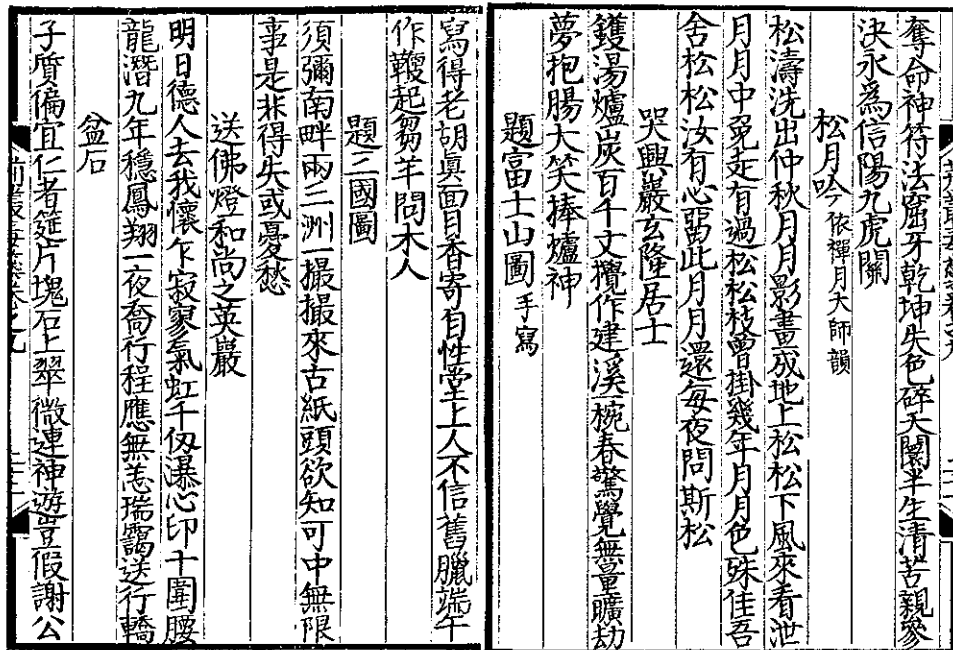 奪命神符法窟牙乾坤失色碎天關半生清苦親參
決永爲信陽九虎關
松月吟依禪月大師韻
松濤洗出仲秋月月影畫成地上松松下風來看泄
月月中兎走有過松松枝曾掛幾年月月色殊佳吾
舍松松汝有心留此月月還每夜問斯松
哭興巖玄隆居士
鑊湯爐炭百千丈攪作建溪一椀春驚覺無量曠劫
夢抱腸大笑捧爐神
題富士山圖手寫
寫得老胡眞面目香寄自性堂上人不信舊臘端午
作鞭起芻羊問木人
題三國圖
須彌南畔兩三洲一撮撮來古紙頭欲知可中無限
事是非得失或憂愁
送佛燈和尚之英巖
明日德人去我懷乍寂寥氣虹千仭瀑心印十圍腰
龍潛九年穩鳳翔一夜喬行程應無恙瑞靄送行轎
盆石
子質偏宜仁者筵片塊石上翠微連神遊豈假謝公